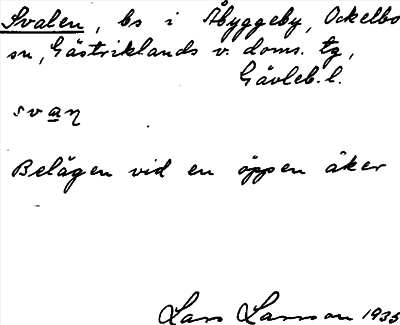 Svalen, bs i Åbyggeby, Ockelbo
sn, Gästriklands v. doms. tg,
Gävleb. l.
svaη
Belägen vid en öppen åker
Lars Larsson 1935